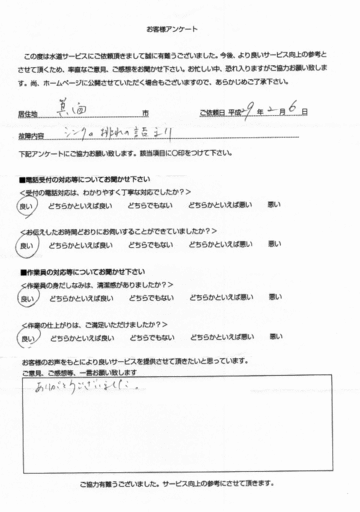 お客様アンケート
この度は水道サービスにご依頼頂きまして誠に有難うございました。今後、より良いサービス向上の参考と
させて頂くため、率直なご意見、ご感想をお聞かせ下さい。お忙しい中、恐れ入りますがご協力お願い致しま
す。尚、ホームページに公開させていただく場合もございますので、あらかじめご了承下さい。
居住地 箕面 市 ご依頼日 平成29年2月6日
故障内容 シンクの排水の詰まり
下記アンケートにご協力お願い致します。該当項目に〇印をつけて下さい。
■電話受付の対応等についてお聞かせ下さい
<受付の電話対応は、わかりやすく丁寧な対応でしたか?>
良い どちらかといえば良い どちらでもない どちらかといえば悪い 悪い
<お伝えしたお時間どおりにお伺いすることができていましたか?>
良い どちらかといえば良い どちらでもない どちらかといえば悪い 悪い
■作業員の対応等についてお聞かせ下さい
<作業員の身だしなみは、清潔感がありましたか?>
良い どちらかといえば良い どちらでもない どちらかといえば悪い 悪い
<作業の仕上がりは、ご満足いただけましたか?>
良い どちらかといえば良い どちらでもない どちらかといえば悪い 悪い
お客様のお声をもとにより良いサービスを提供させて頂きたいと思っています。
ご意見、ご感想等、一言お願い致します
ありがとうございました。
ご協力有難うございました。サービス向上の参考にさせて頂きます。